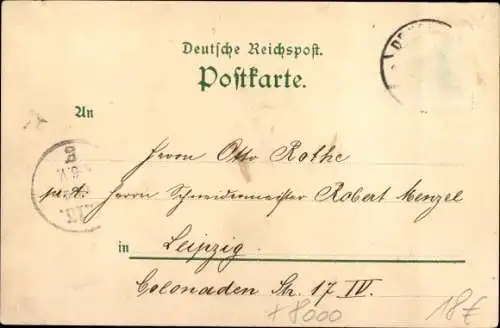 Deutsche Reichspost.
Postkarte.
An
Herrn Otto Rothe
p. A. Herrn Schneidermeister Robert Menzel
in Leipzig.
Colonaden Str. 17 IV.
+8000
18€